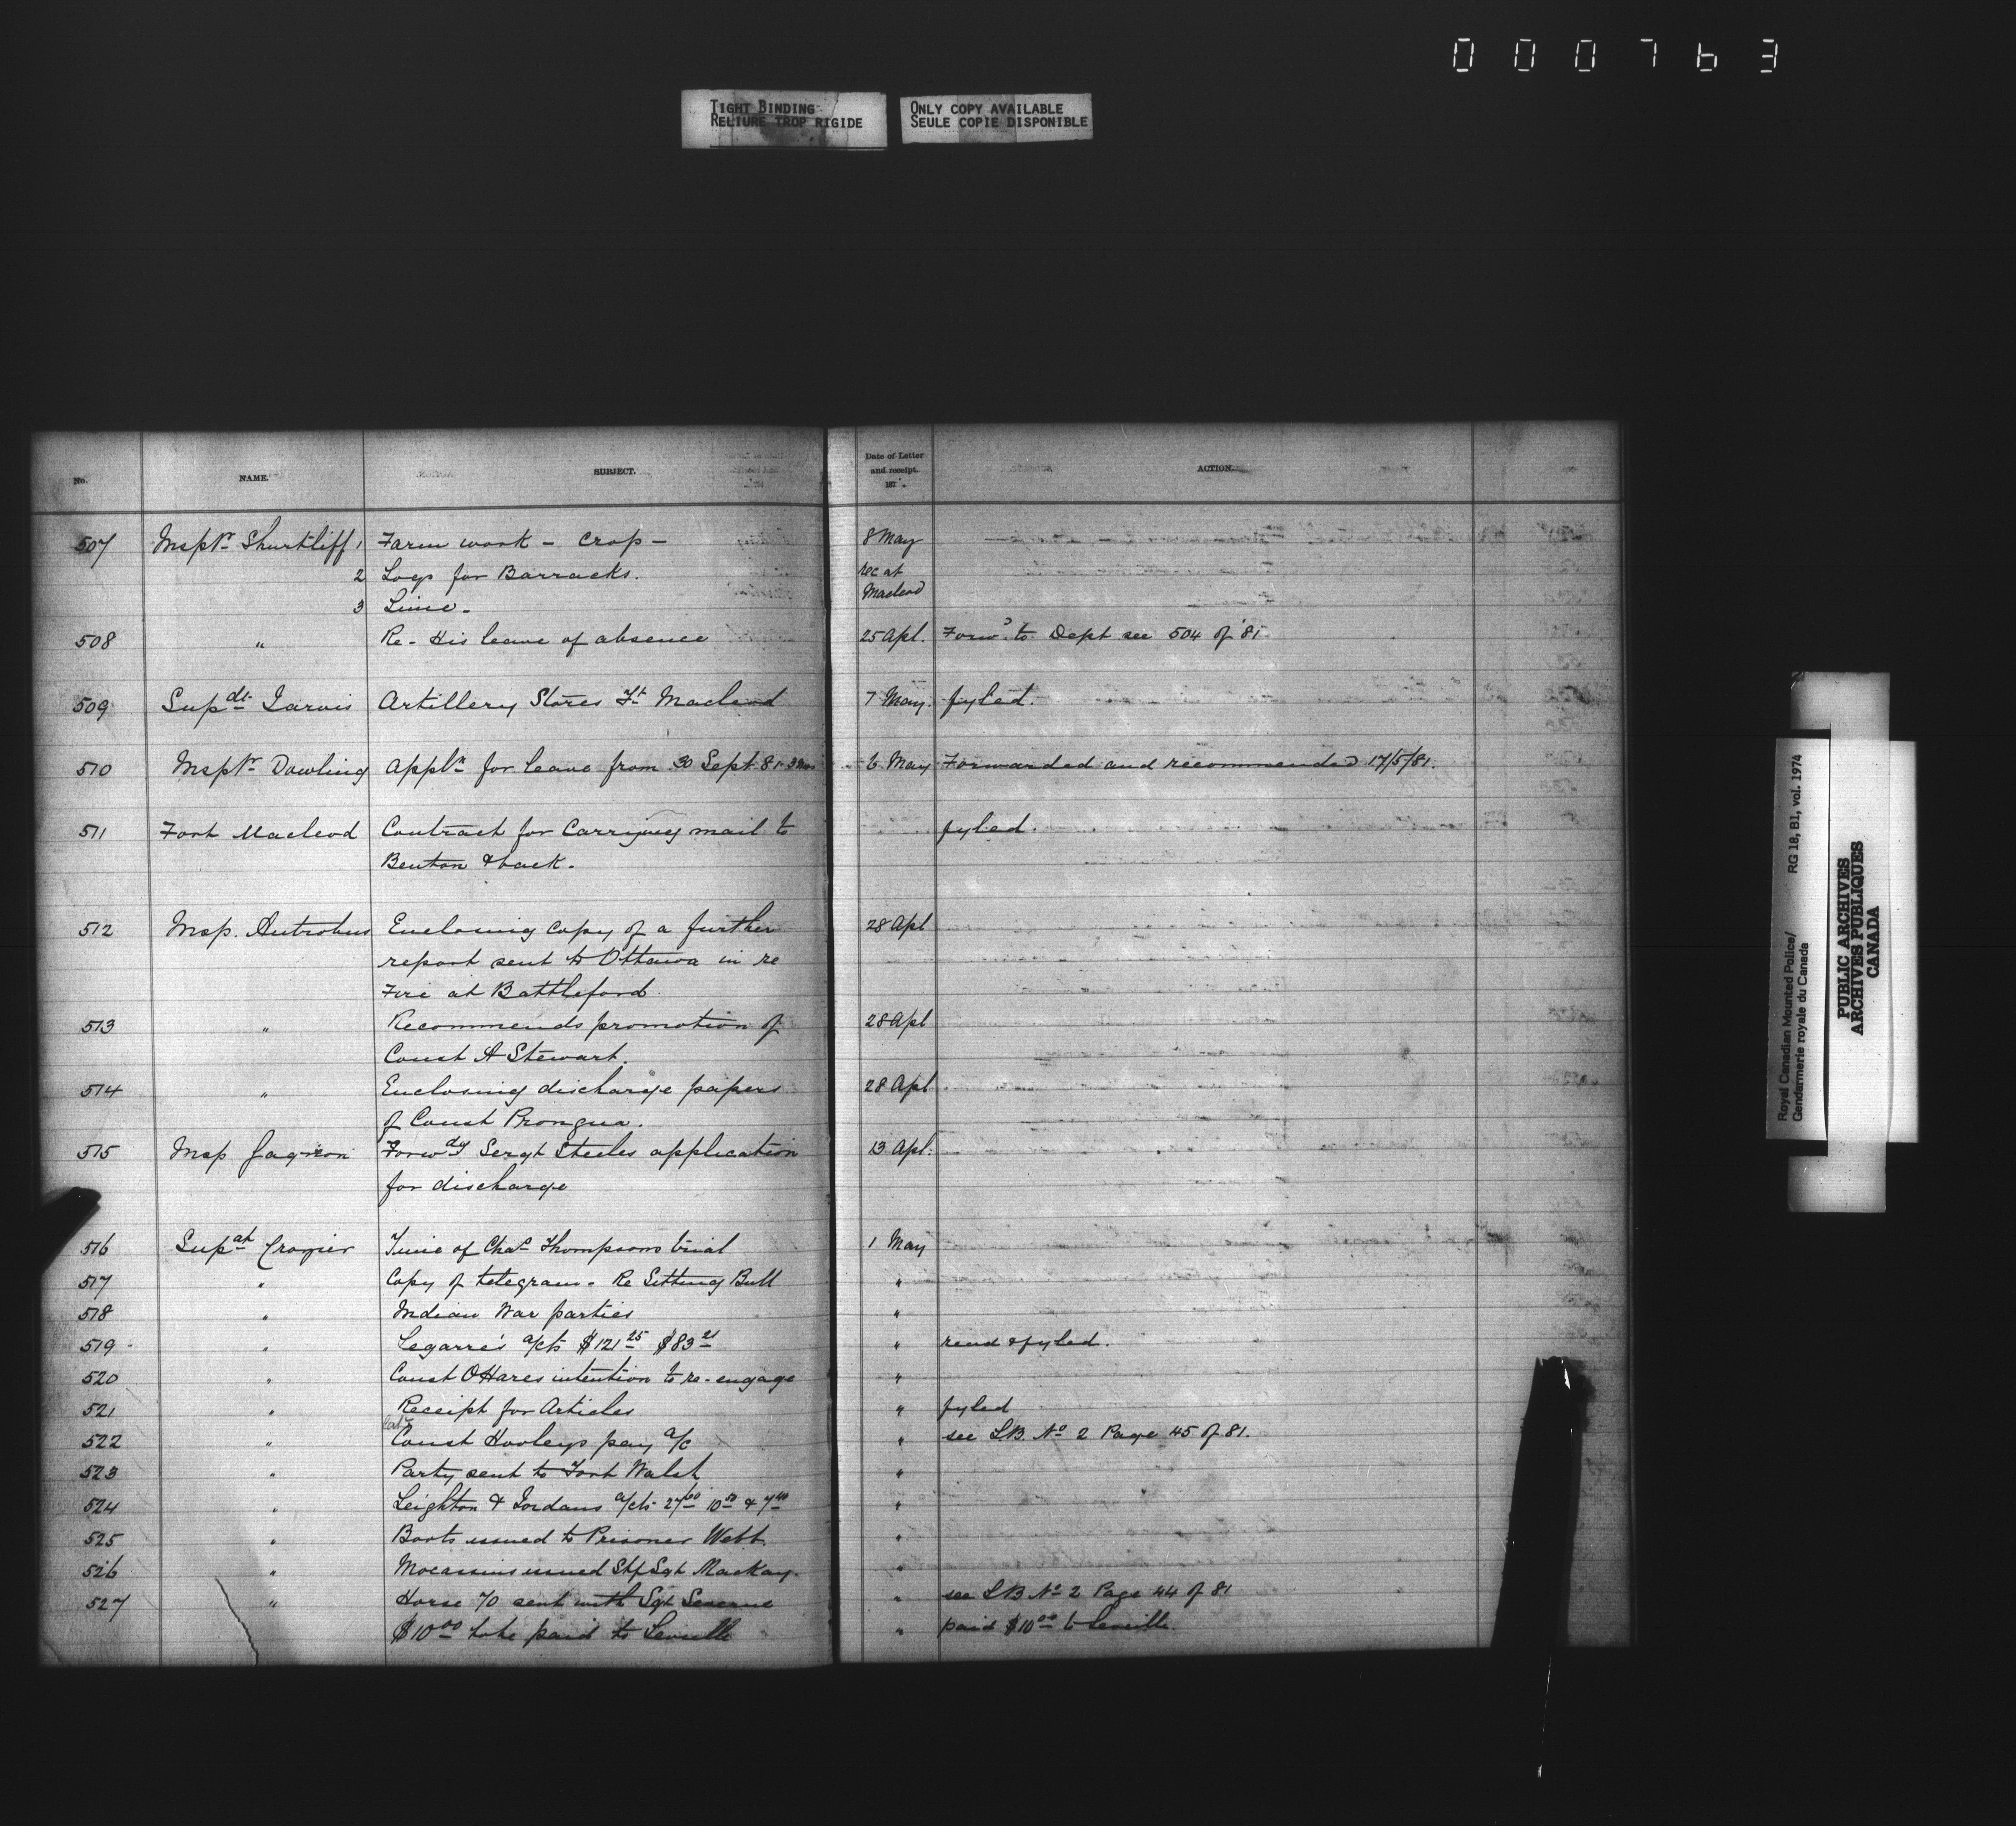 000763
TIGHT BINDING
RELIURE TROP RIGIDE
ONLY COPY AVAILABLE
SEULE COPIE DISPONIBLE
No. NAME. SUBJECT. Date of Letter and receipt. 187 . ACTION.
507 Inspr Shurtliff 1 Farm work - Crop - 8 May
2 Logs for Barracks. rec at
3 Lime - Macleod
508 " Re - His leave of absence 25 Apl. Forwd. to Dept see 504 of '81
509 Supdt Jarvis Artillery Stores Ft Macleod 7 May. fyled.
510 Inspr Dowling Appln for leave from 30 Sept 81 3 mos 6 May Forwarded and recommended 17/5/81.
511 Fort Macleod Contract for Carrying mail to fyled.
Benton & back.
512 Insp. Antrobus Enclosing copy of a further 28 Apl
report sent to Ottawa in re
Fire at Battleford
513 " Recommends promotion of 28 Apl
Const A Stewart.
514 " Enclosing discharge papers 28 Apl
of Const Prongua.
515 Insp Gagnon Forwdg Sergt Steeles application 13 Apl.
for discharge
516 Supdt Crozier Time of Chas Thompsons trial 1 May
517 " Copy of telegram - Re Sitting Bull "
518 " Indian War parties "
519 " Legarre's a/cts $121 25 $83 21 " read & fyled.
520 " Const O'Hares intention to re-engage "
521 " Receipt for Articles " fyled
522 " Const Hooleys pay a/c " see L.B. No 2 Page 45 of 81.
523 " Party sent to Fort Walsh "
524 " Leighton & Jordans a/cts 27 00 10 50 & 7 40 "
525 " Boots issued to Prisoner Webb. "
526 " Mocassins issued Stf Sgt MacKay. "
527 " Horse 70 sent with Sgt " see LB No 2 Page 44 of 81
$10 00 to be paid to Leveille " paid $10 00 to Leveille.
Royal Canadian Mounted Police/
Gendarmerie royale du Canada
RG 18, B1, vol. 1974
PUBLIC ARCHIVES
ARCHIVES PUBLIQUES
CANADA